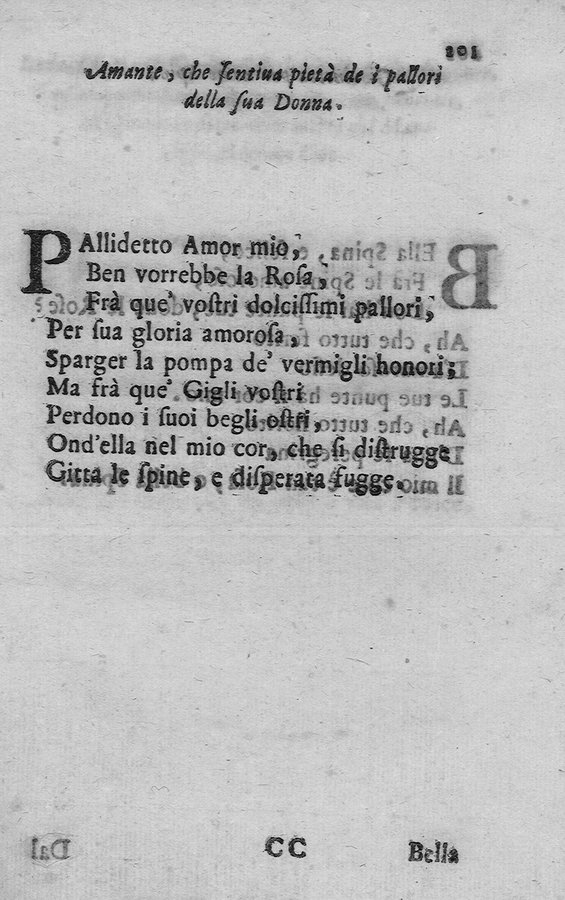 201
Amante, che ſentiua pietà de i pallori
della ſua Donna.
PAllidetto Amor mio,
Ben vorrebbe la Roſa,
Frà que' voſtri dolciſſimi pallori,
Per ſua gloria amoroſa,
Sparger la pompa de' vermigli honori;
Ma frà que' Gigli voſtri
Perdono i ſuoi begli oſtri,
Ond'ella nel mio cor, che ſi diſtrugge
Gitta le ſpine, e diſperata fugge.
CC
Bella